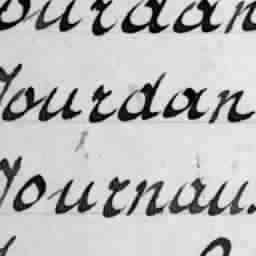 Jourdan
Jourdan
Journau